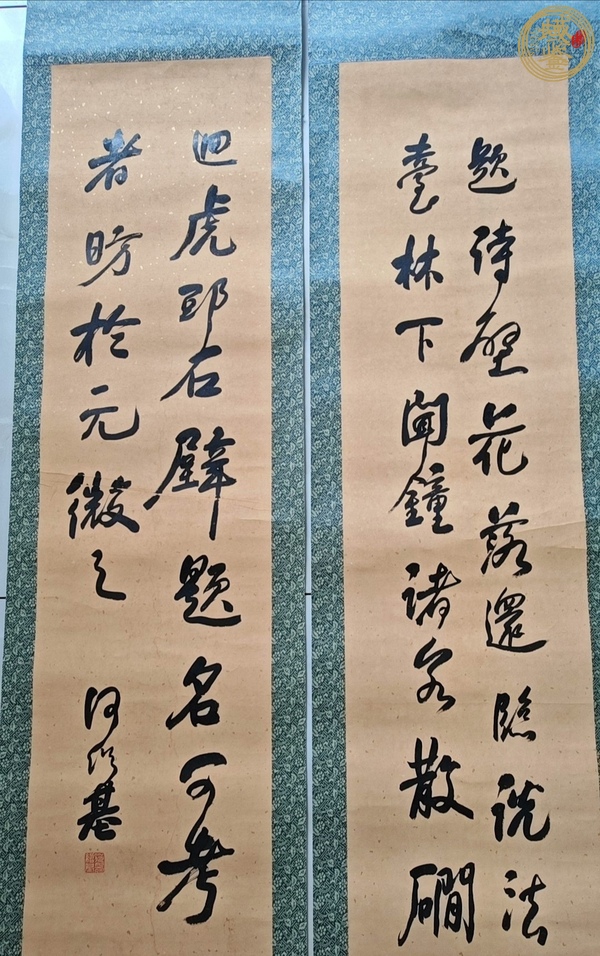 题诗壁花落还临说法
台林下闻钟诸公散硐
迴虎邱石壁题名可考
者昉於元微之
何绍基